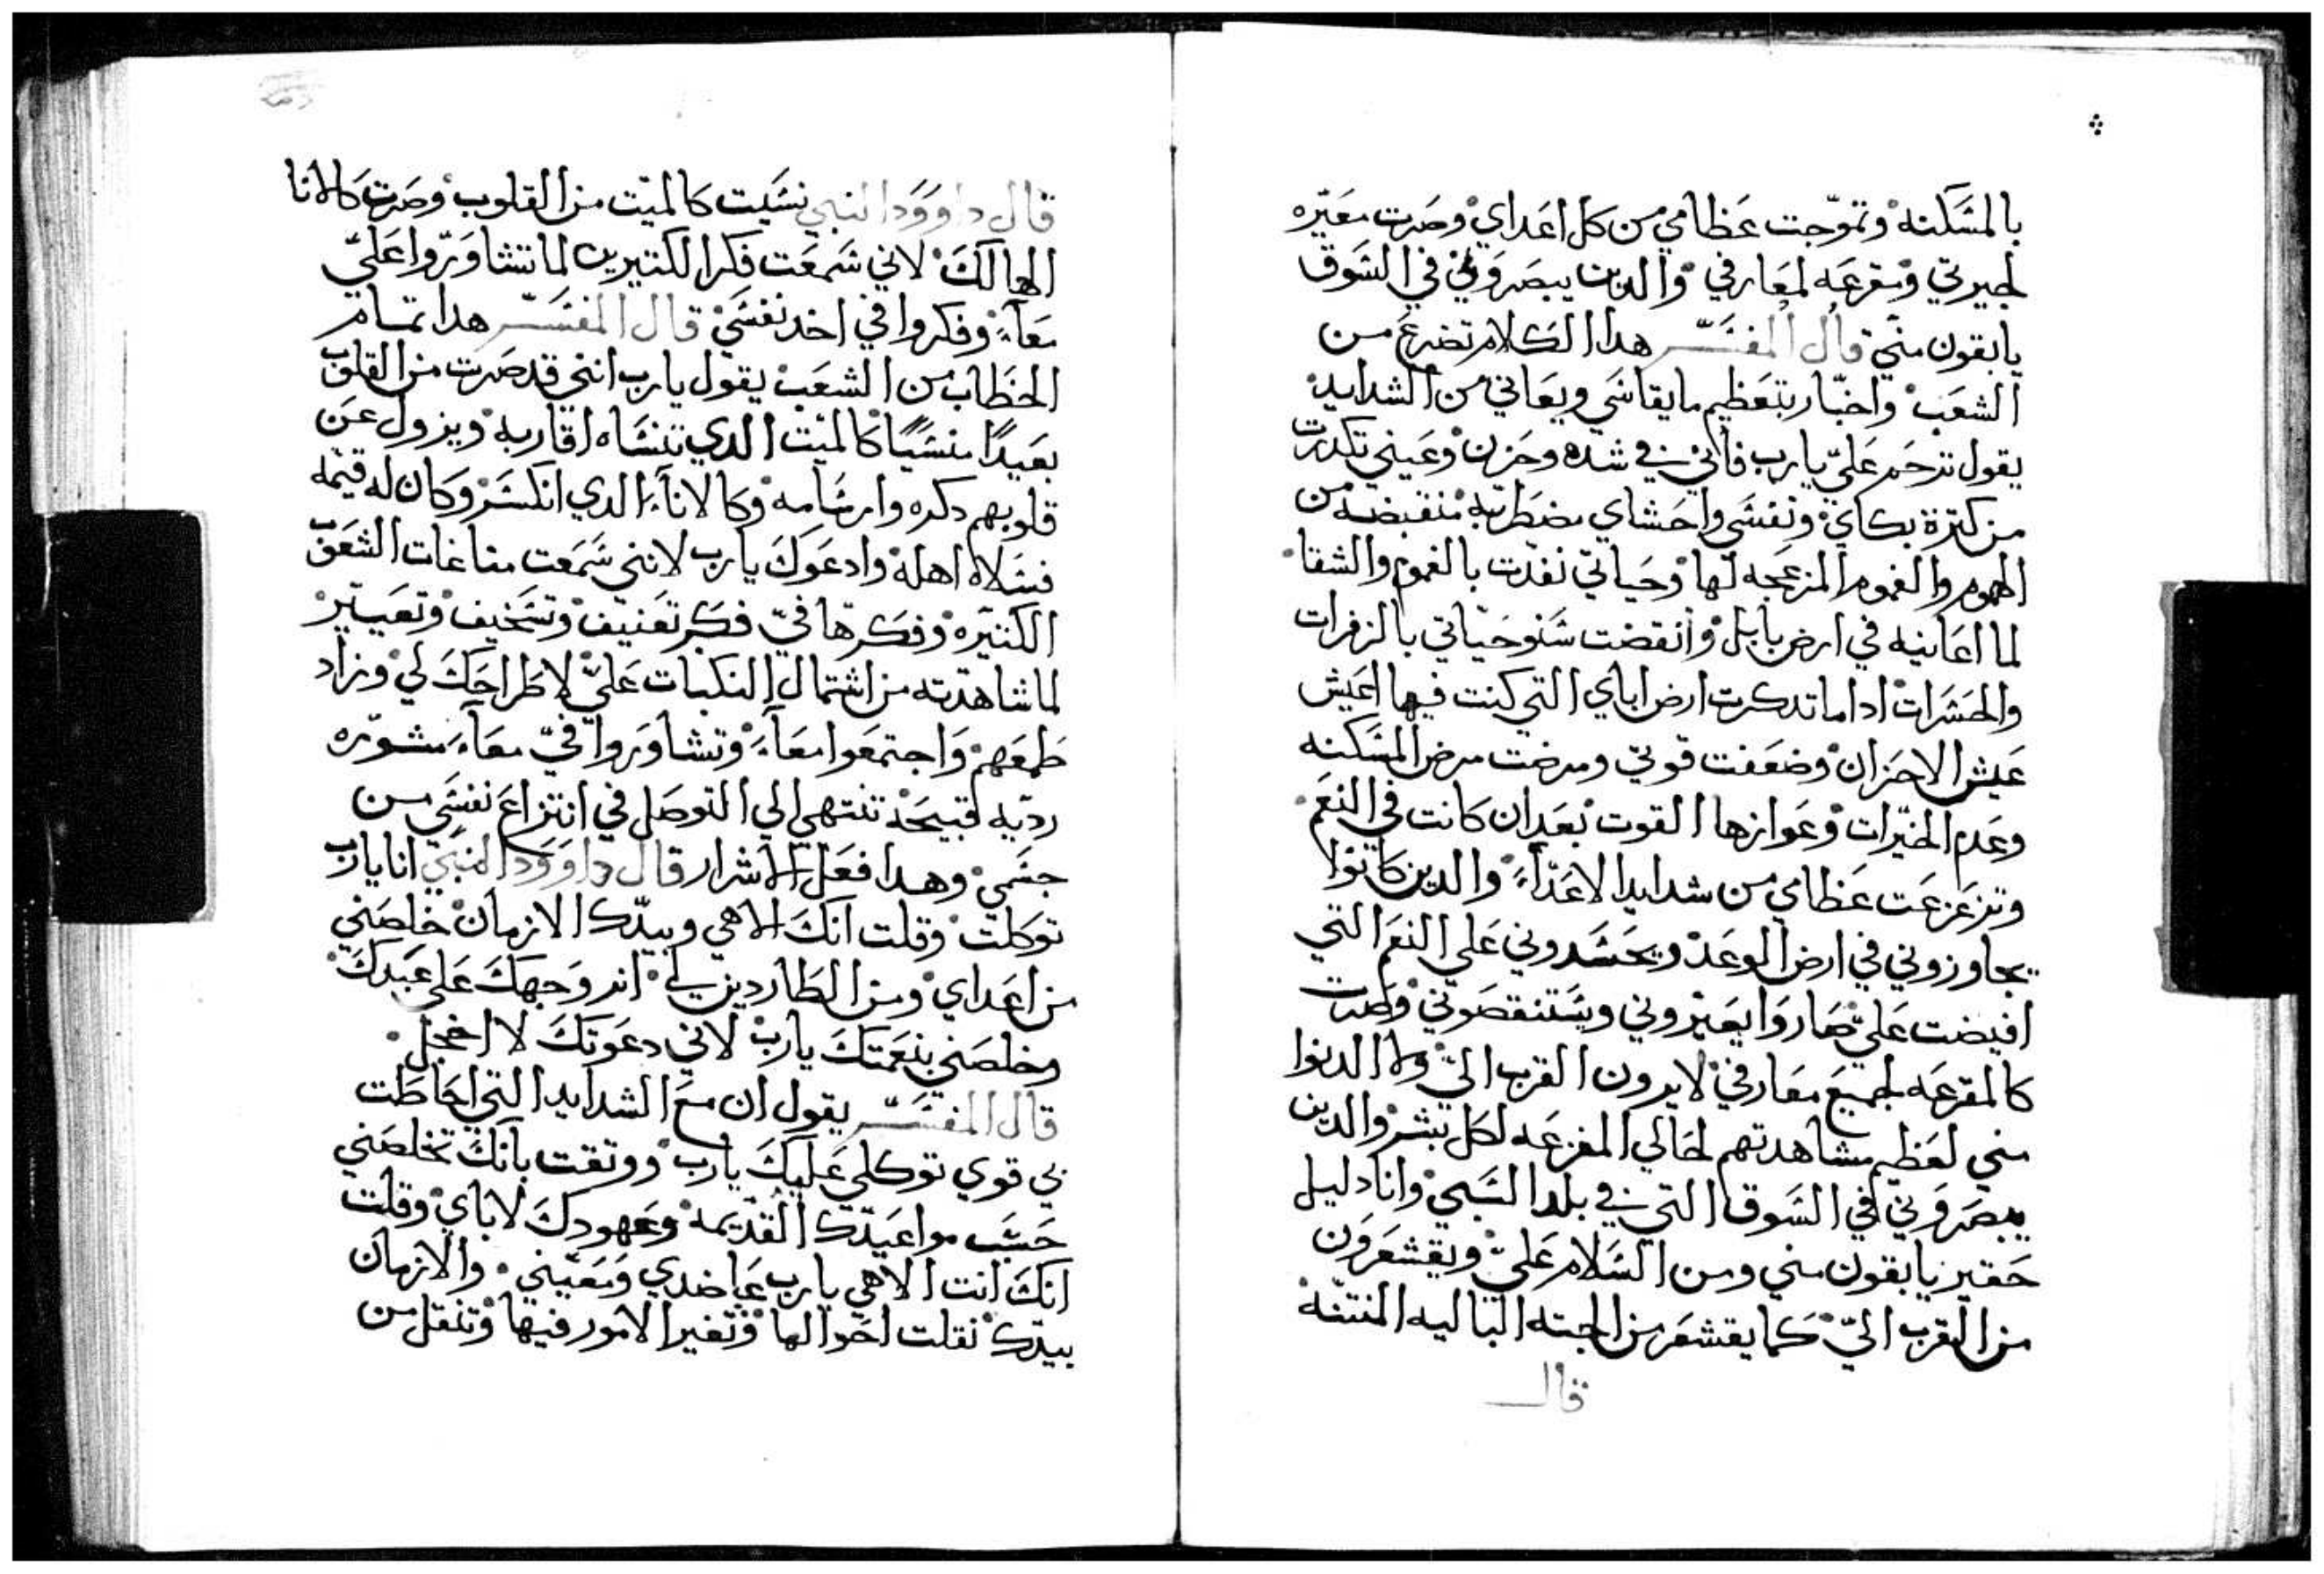 بالمسكنه وتموّجت عظامي من كل اعداي وصرت معيّره
لجيرتي ومقرعه لمعارفي والدين يبصروني في السوق
يابقون مني قال المفسّر هدا الكلام تضرع من
الشعب واخبار بتعظيم مايقاسي ويعاني من الشدايد
يقول ترحم عليّ يارب فأني في شده وحزن وعيني تكدرت
من كترة بكاي ونفسي واحشاي مضطربه منقبضه من
الهموم والغموم المزعجه لها وحياتي نفدت بالغموم والشقا
لما اعانيه في ارض بابل وانقضت سنو حياتي بالزفرات
والحسرات ادا ما تدكرت ارض اباي التي كنت فيها اعيش
عيش الاحزان وضعفت قوتي ومرضت مرض المسكنه
وعدم الخيرات وعوازها القوت بعد ان كانت في النعم
وتزعزعت عظامي من شدايد الاعداء والدين كانوا
يجاوزوني في ارض الوعد ويحسدوني على النعم التي
افيضت عليّ صاروا يعيروني ويستنقصوني وصرت
كالمقرعه لجميع معارفي لايرون القرب اليّ ولا الدنوا
مني لعظيم مشاهدتهم لحالي المفزعه لكل بشر والدين
يبصروني في السوق التي في بلد السبي وانا دليل
حقير يابقون مني ومن السلام عليّ ويقشعرون
من القرب اليّ كما يقشعر من الجته الباليه المنتنه
قال
قال داوود النبي نسيت كالميّت من القلوب وصرت كالانا
الهالك لاني سمعت فكر الكتيرين لما تشاوروا عليّ
معاً وفكروا في اخد نفسي قال المفسّر هدا تمام
الخطاب من الشعب يقول يارب انني قد صرت من القلوب
بعيداً منسياً كالميّت الدي تنساه اقاربه ويزول عن
قلوبهم دكره وارسامه وكالاناء الدي انكسر وكان له قيمه
فسلاه اهله وادعوك يارب لانني سمعت مناغات الشعوب
الكتيره وفكرها فيّ فكر تعنيف وتسخيف وتعيير
لما شاهدته من اشتمال النكبات عليّ لاطراحك لي وزاد
طمعهم واجتمعوا معاً وتشاوروا فيّ معاً مشوره
رديه قبيحة تنتهي الي التوصل في انتزاع نفسي من
جسمي وهدا فعل الاشرار قال داوود النبي انا يارب
توكلت وقلت انك الاهي وبيدك الازمان خلصني
من اعداي ومن الطاردين لي انر وجهك على عبدك
وخلصني بنعمتك يارب لاني دعوتك لا اخجل
قال المفسّر يقول ان مع الشدايد التي احاطت
بي قوي توكلي عليك يارب ووتقت بانك تخلصني
حسب مواعيدك القديمه وعهودك لاباي وقلت
انك انت الاهي يارب عاضدي ومعيني والازمان
بيدك نقلت احوالها وتغير الامور فيها وتنقل من